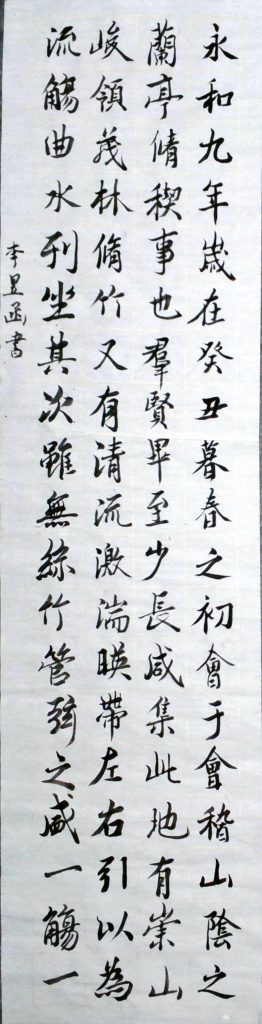 永和九年歲在癸丑暮春之初會于會稽山陰之
蘭亭脩稧事也羣賢畢至少長咸集此地有崇山
峻領茂林脩竹又有清流激湍暎帶左右引以為
流觴曲水列坐其次雖無絲竹管弦之盛一觴一
李昱函書